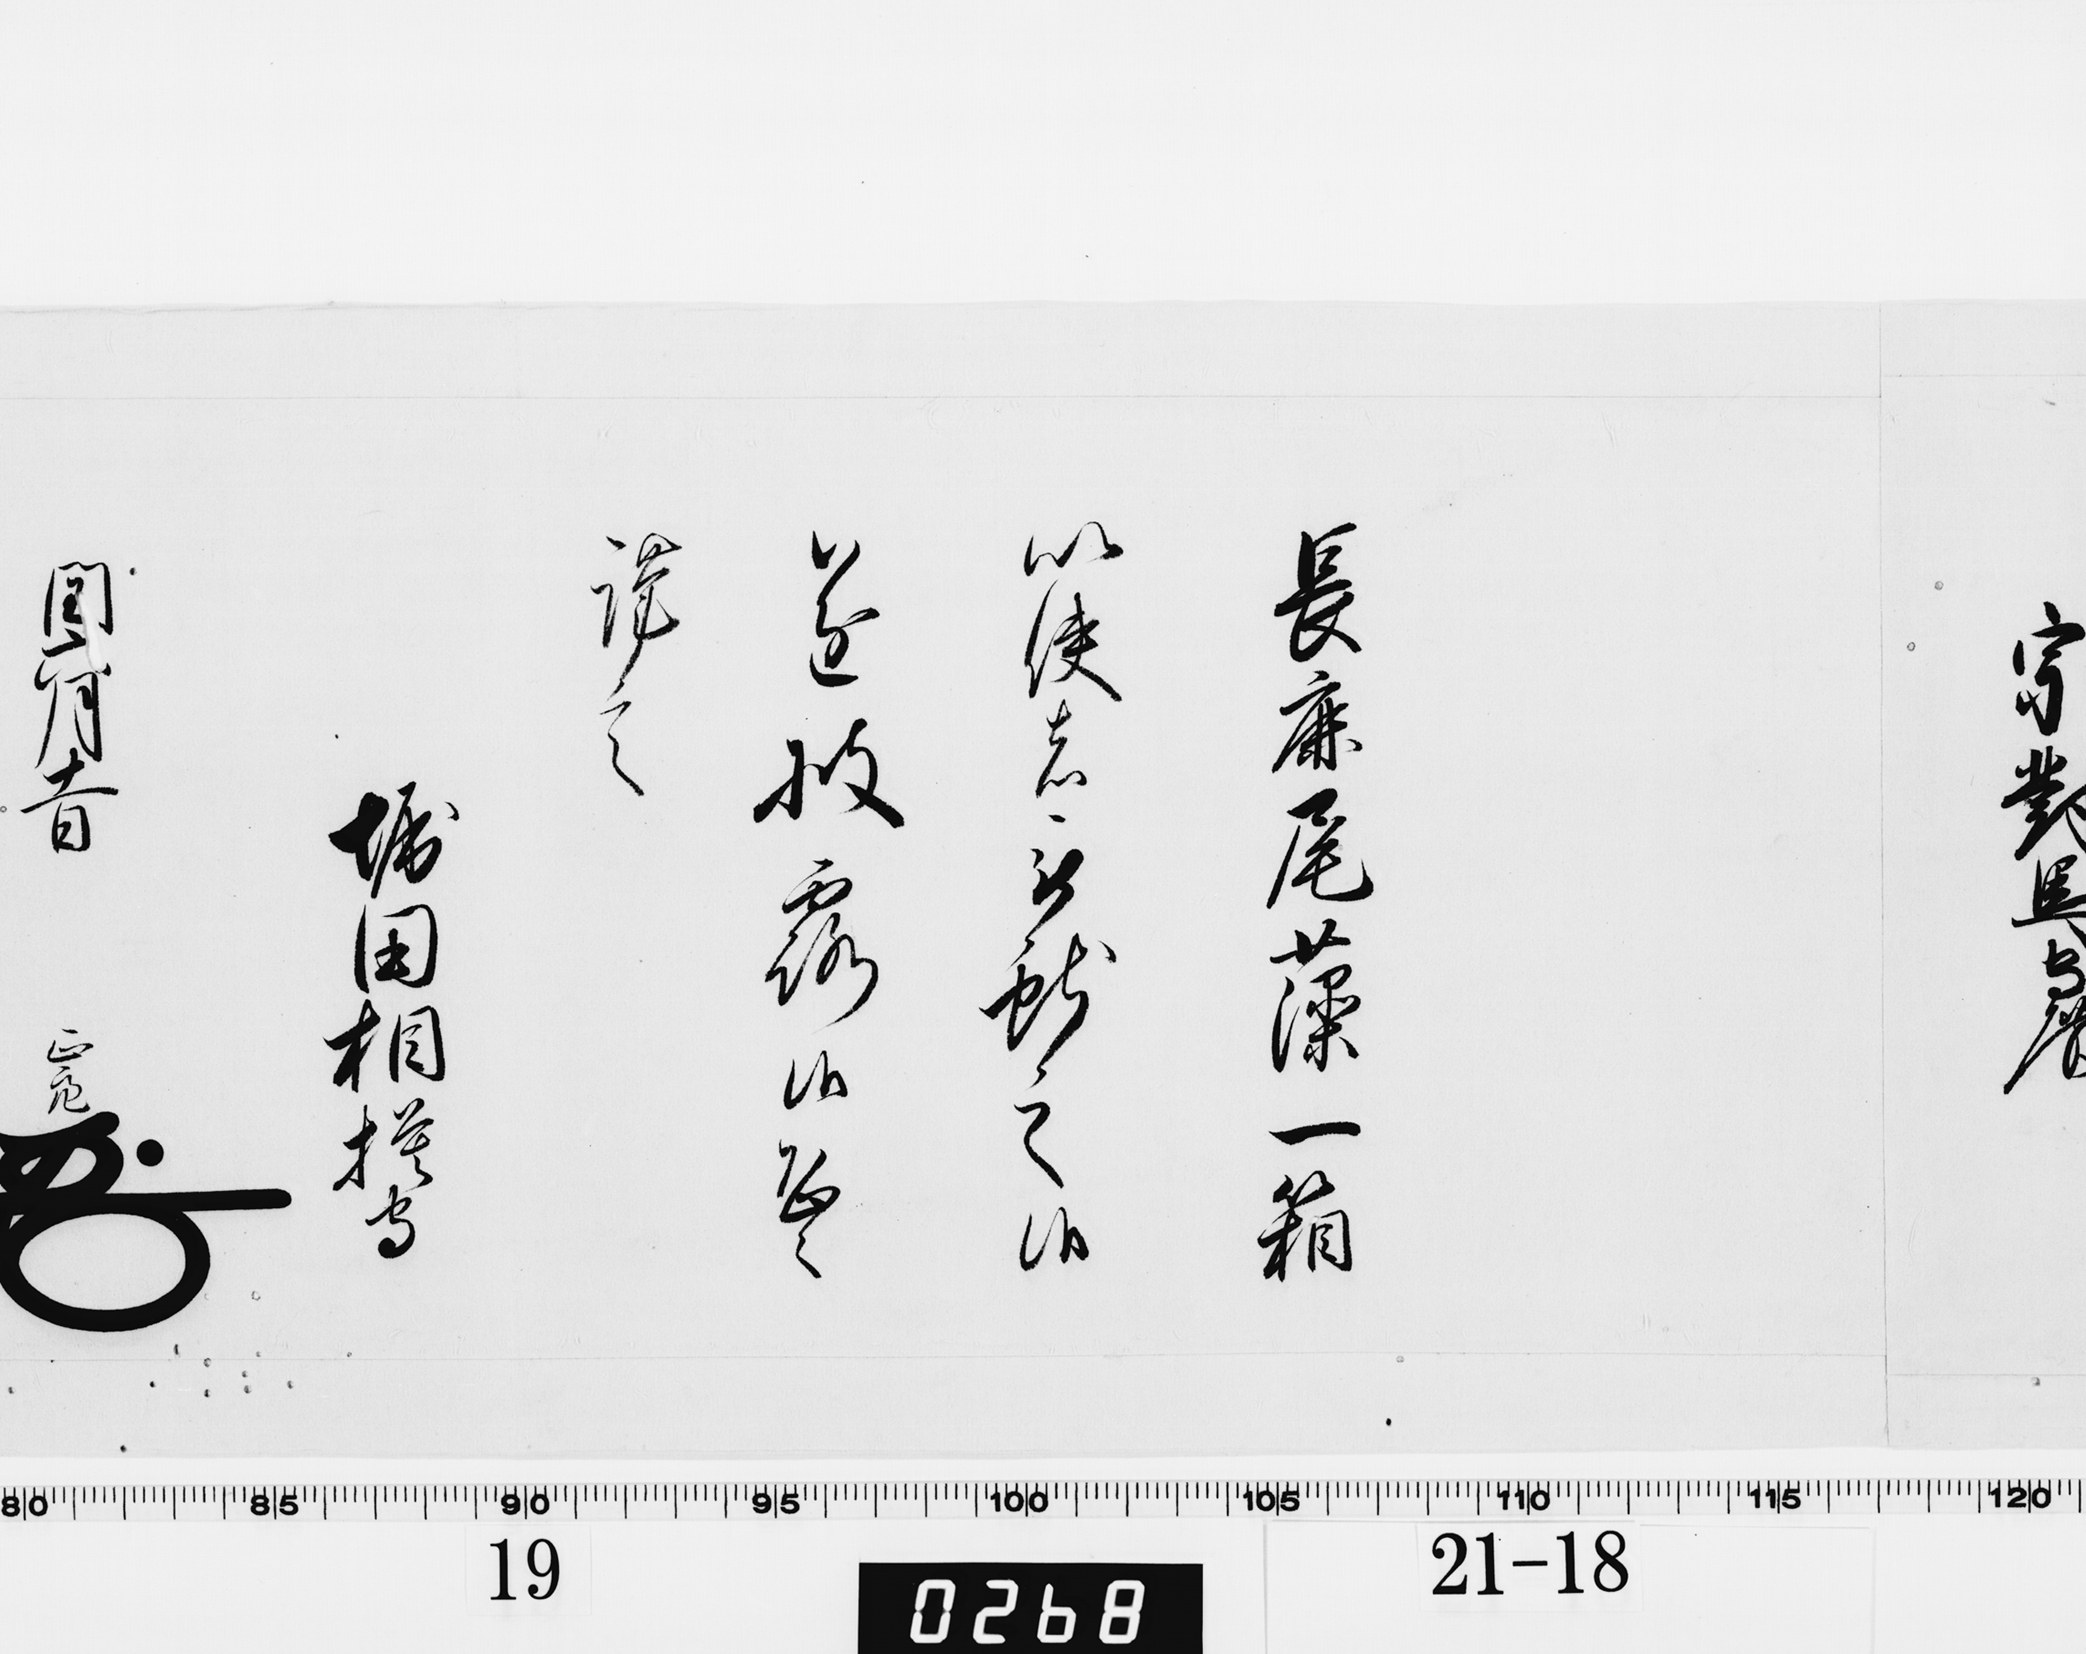 宗對馬守殿
長鹿尾藻一箱
以使者被献之候
遂披露候處
謹言
堀田相模守
閏六月十一日
正亮
80 85 90 95 100 105 110 115 120
19
0268
21-18